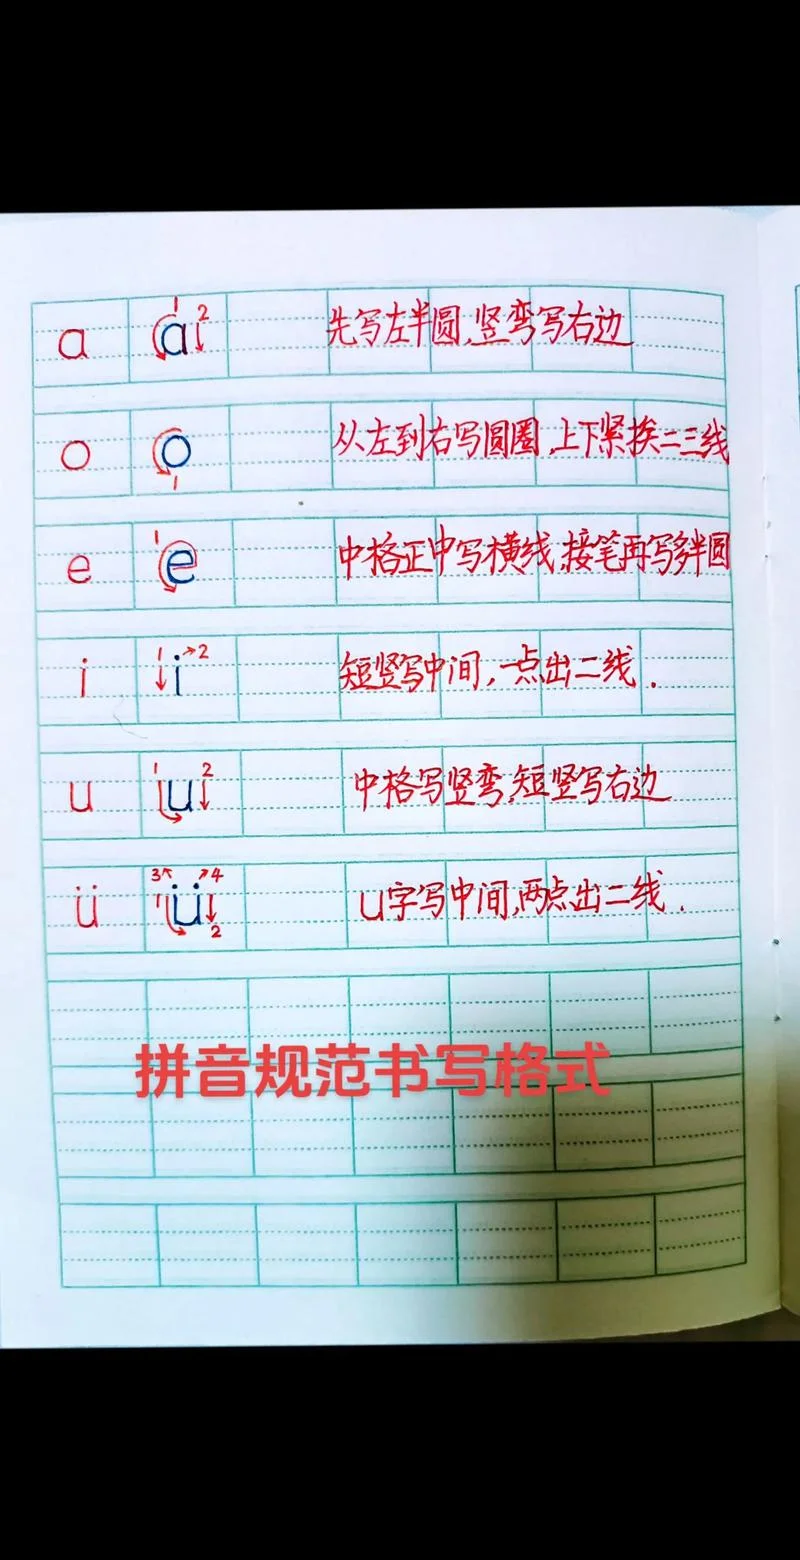 a 1 2 a 先写左半圆,竖弯写右边
o o 1 从左到右写圆圈,上下紧挨二三线
e 1 e 中格正中写横线,接笔再写多半圆
i 1 i 2 短竖写中间,一点出二线.
u 1 u 2 中格写竖弯,短竖写右边
ü 3 4 1 ü 2 U字写中间,两点出二线.
拼音规范书写格式